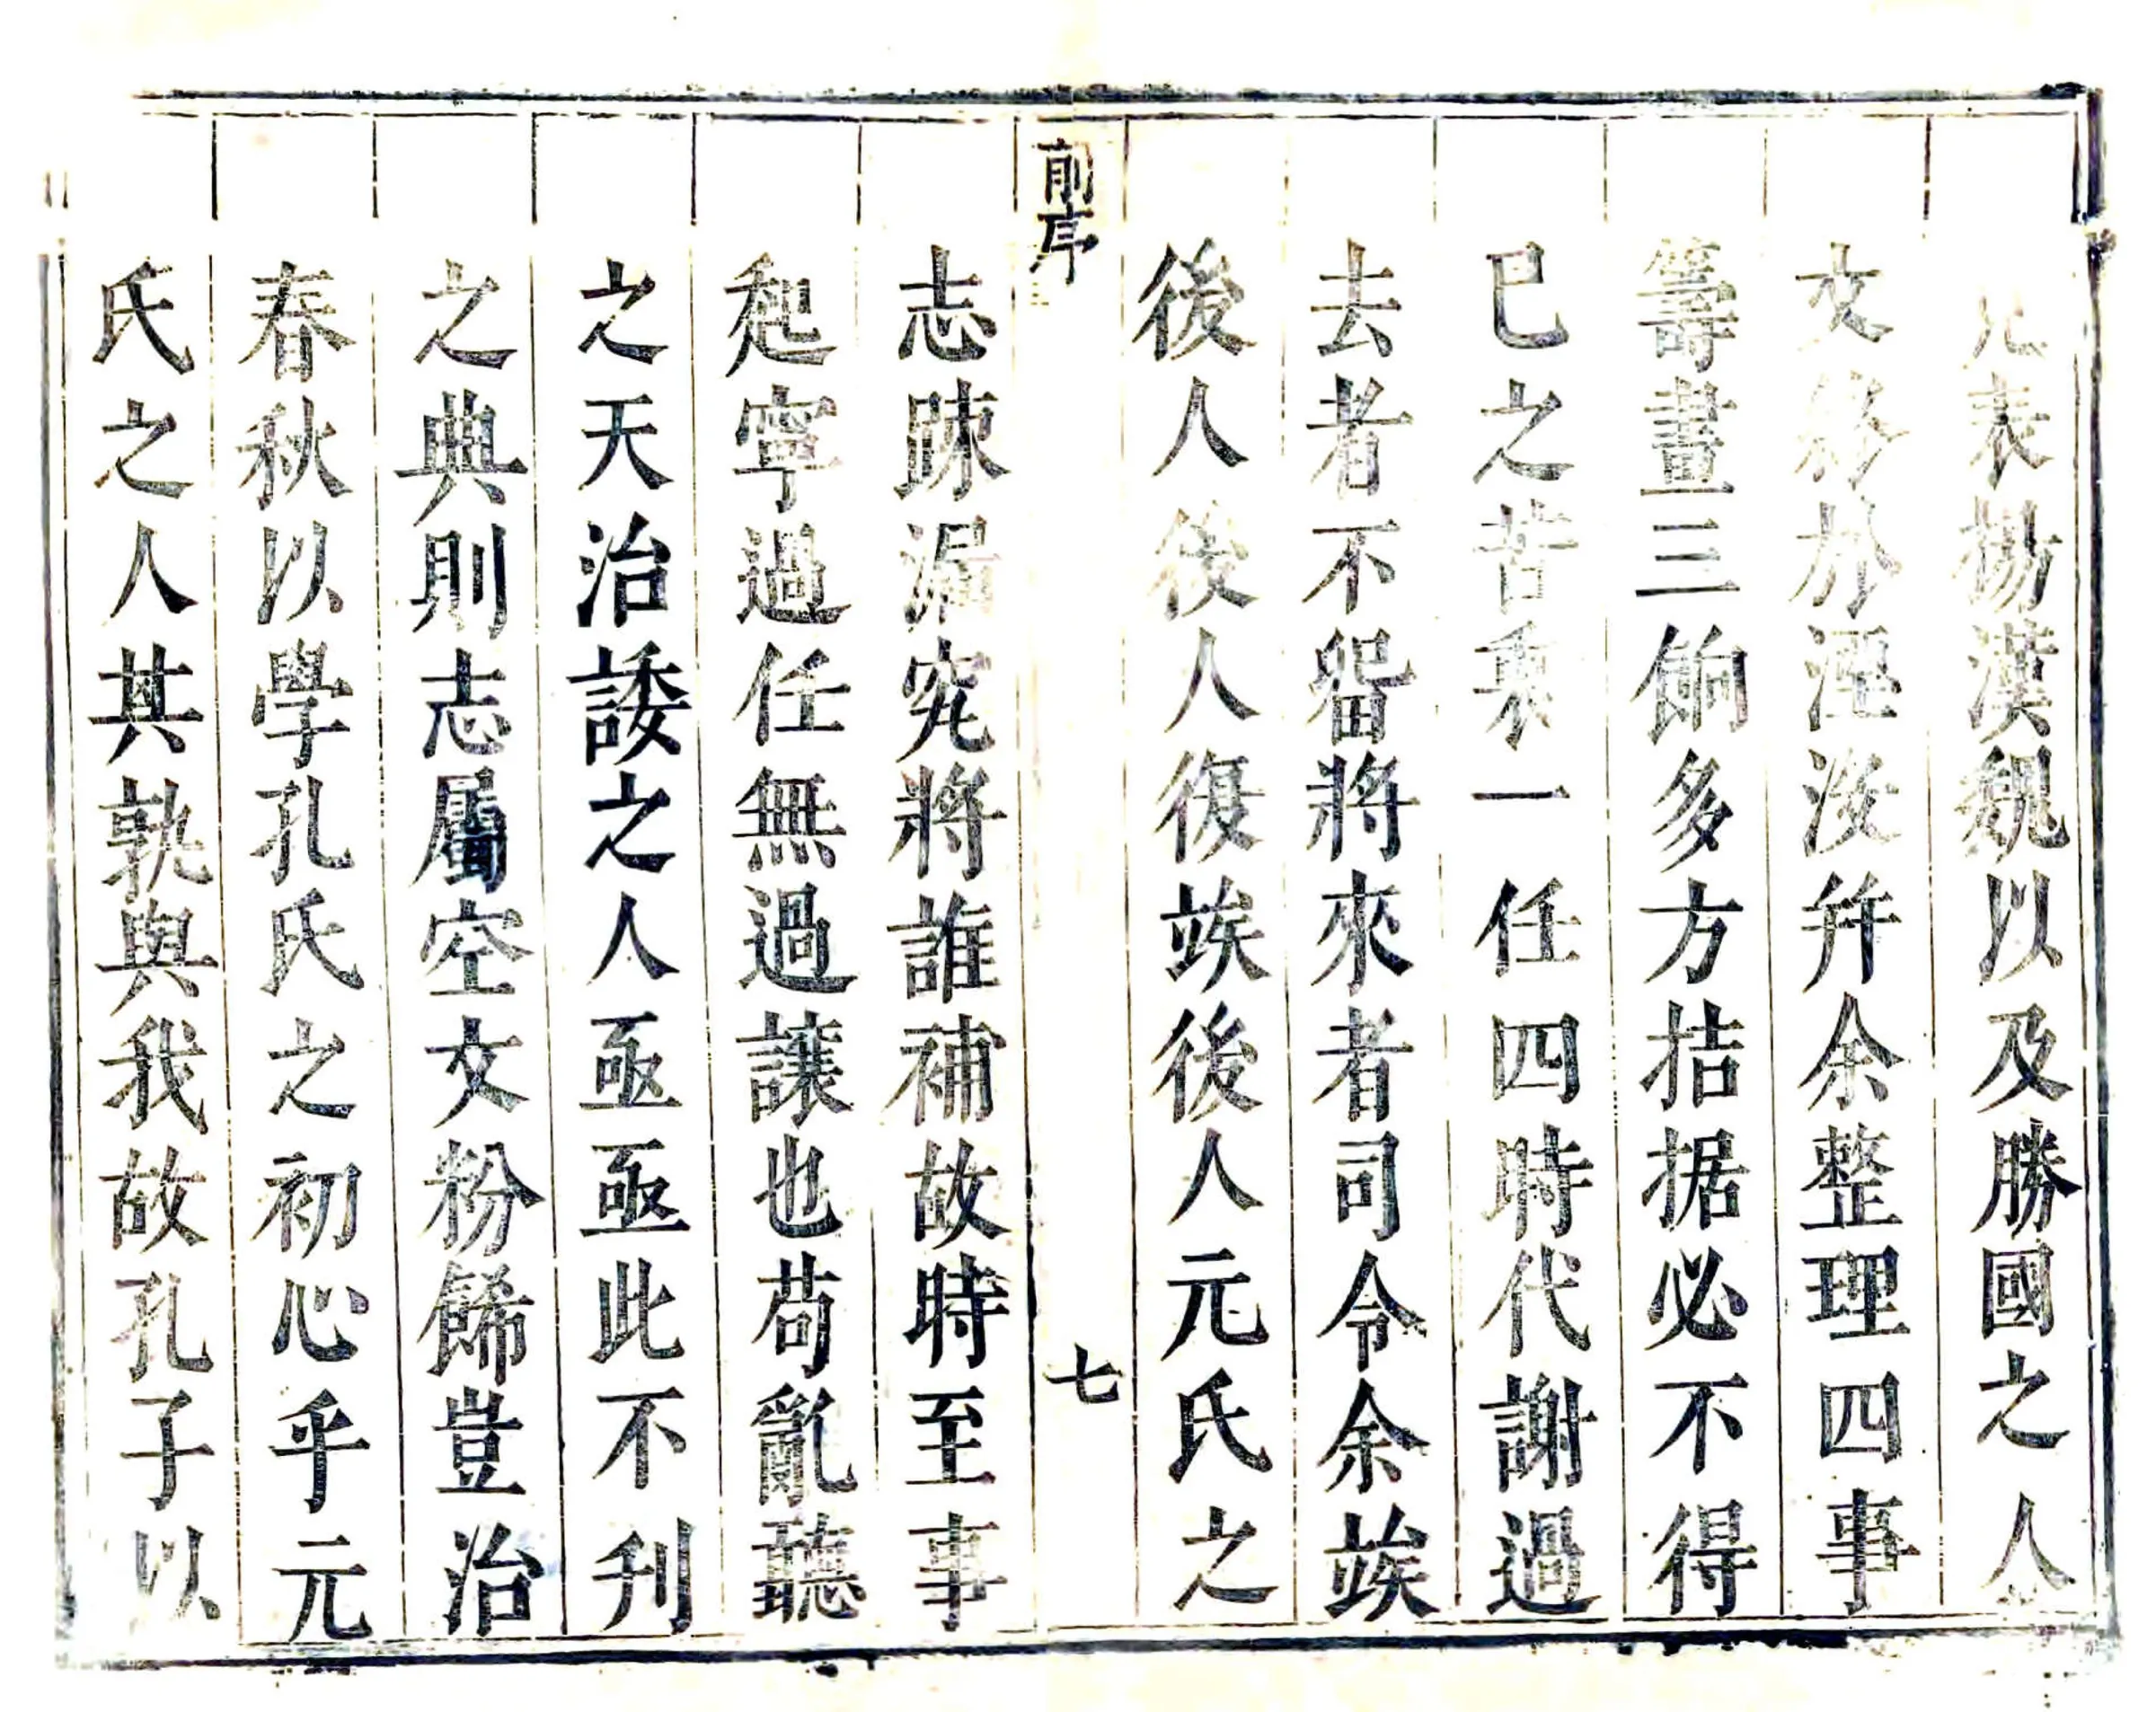 表揚漢魏以及勝國之人
文移於湮沒并余整理四事
籌畫三餉多方拮据必不得
已之苦衷一任四時代謝過
去者不留將來者司令余竢
後人後人復竢後人元氏之
前序
七
志踈漏究將誰補故時至事
起寧過任無過讓也苟亂聽
之天治諉之人亟亟此不刊
之典則志屬空文粉餙豈治
春秋以學孔氏之初心乎元
氏之人其孰與我故孔子以